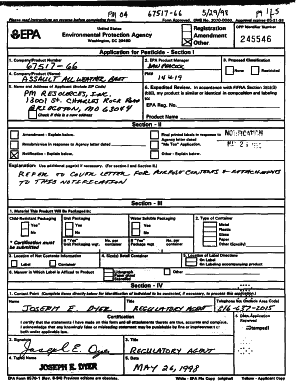 PM 04 67517-66 5/29/98 PM 1L5
Please read instructions on reverse before completing form. Form Approved. OMB No. 2070-0060.
EPA
United States
Environmental Protection Agency
Washington, DC 20460
Registration
Amendment
Other
OPP Identifier Number
245546
Application for Pesticide - Section I
1. Company/Product Number
67517-66
2. EPA Product Manager
3. Proposed Classification
None
Restricted
4. Company/Product (Name)
ASSAULT ALL WEATHER BAIT
PM#
5. Name and Address of Applicant (Include ZIP Code)
PM RESOURCES, INC.
13001 ST. CHARLES ROCK ROAD
BRIDGETON, MO 63044
Check if this is a new address
6. Expedited Review. In accordance with FIFRA Section 3(c)(3)
(b)(i), my product is similar or identical in composition and labeling
to:
EPA Reg. No.
Product Name
Section - II
Amendment - Explain below.
Resubmission in response to Agency letter dated
Notification - Explain below.
Final printed labels in response to
Agency letter dated
"Me Too" Application.
Other - Explain below.
NOTIFICATION
Explanation: Use additional page(s) if necessary. (For section I and Section II.)
REFER TO COVER LETTER FOR PURPOSE/CONTENTS & ATTACHMENTS
TO THIS NOTIFICATION
Section - III
1. Material This Product Will Be Packaged In:
Child-Resistant Packaging
Yes*
No
* Certification must
be submitted
Unit Packaging
Yes
No
If "Yes"
Unit Packaging wgt.
No. per
container
Water Soluble Packaging
Yes
No
If "Yes"
Package wgt
No. per
container
2. Type of Container
Metal
Plastic
Glass
Paper
Other (Specify)
3. Location of Net Contents Information
Label
Container
4. Size(s) Retail Container
5. Location of Label Directions
On Label
On Labeling accompanying product
6. Manner in Which Label is Affixed to Product
Lithograph
Paper glued
Stenciled
Other
Section - IV
1. Contact Point (Complete items directly below for identification of individual to be contacted, if necessary, to process this application.)
Name
JOSEPH E. DYER
Title
REGULATORY AGENT
Telephone No. (Include Area Code)
Certification
I certify that the statements I have made on this form and all attachments thereto are true, accurate and complete.
I acknowledge that any knowingly false or misleading statement may be punishable by fine or imprisonment or
both under applicable law.
6. Date Application
Received
(Stamped)
2. Signature
Joseph E. Dyer
3. Title
REGULATORY AGENT
4. Typed Name
JOSEPH E. DYER
5. Date
MAY 26, 1998
EPA Form 8570-1 (Rev. 8-94) Previous editions are obsolete.